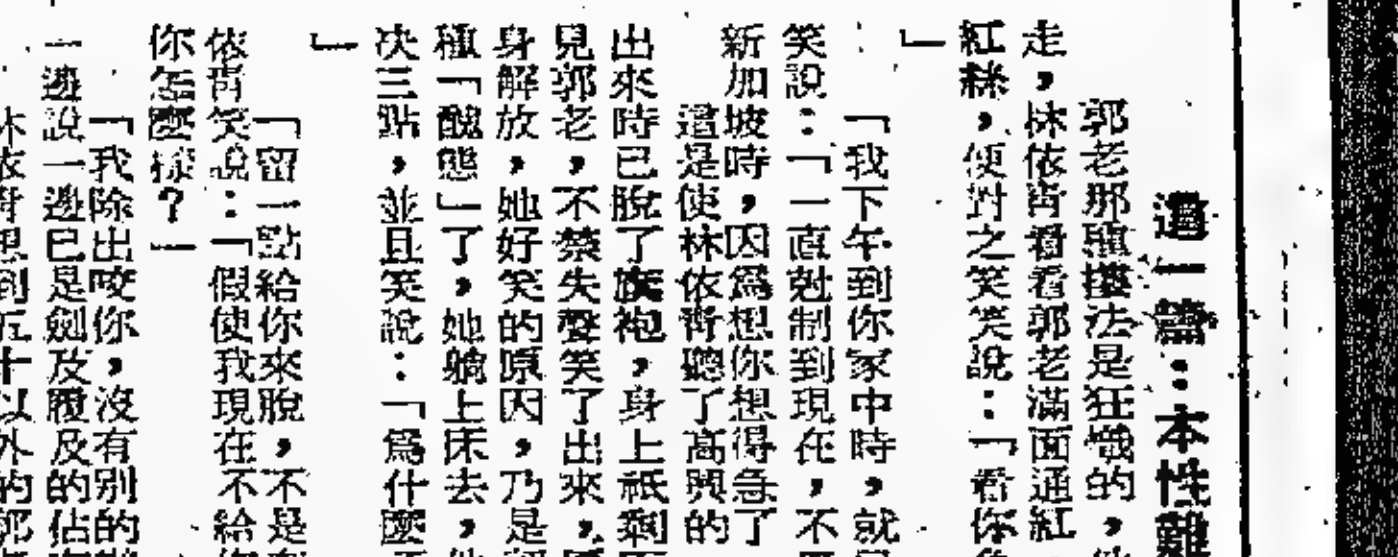 這一篇：本性難
郭老那種摟法是狂熾的，他
走，林依靑看看郭老滿面通紅
紅絲，便對之笑笑說：「看你
」
「我下午到你家中時，就
笑說：「一直尅制到現在，不
新加坡時，因爲想你想得急了
這是使林依靑聽了高興的
出來時已脫了旗袍，身上祇剩
見郭老，不禁失聲笑了出來，
身解放，她好笑的原因，乃是
種「醜態」了，她躺上床去，
决三點，並且笑說：「爲什麼
」
「留一點給你來脫，不是
依靑笑說：「假使我現在不給
你怎麼樣？」
「我除出咬你，沒有別的
一邊說一邊已是劍及履及的佔
林依靑想到五十以外的郭